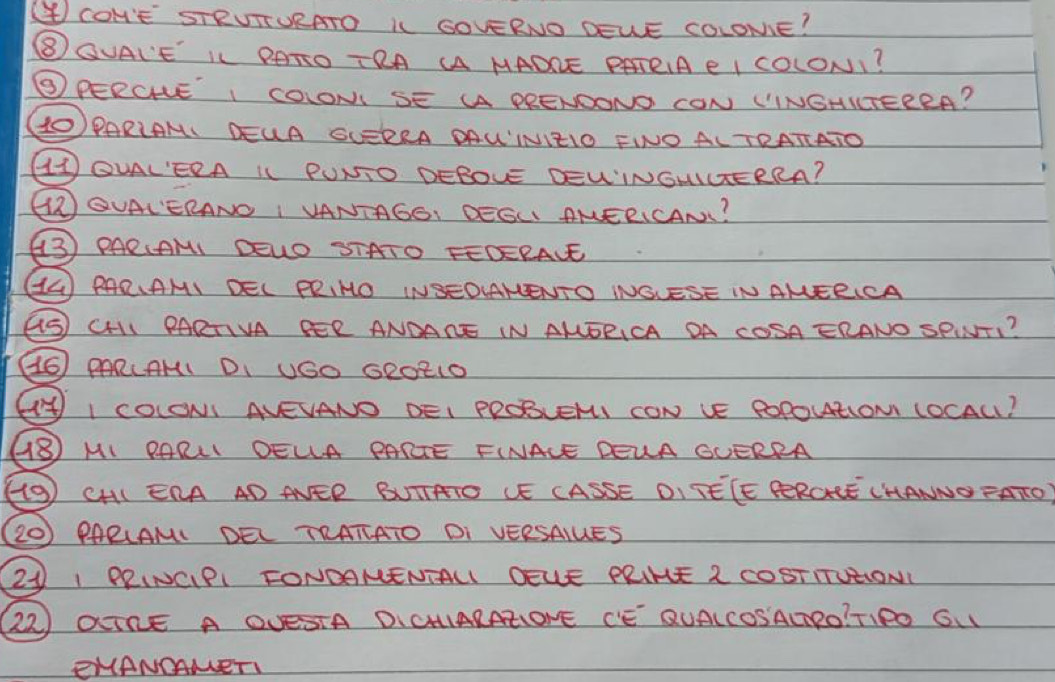 7 COM'È STRUTTURATO IL GOVERNO DELLE COLONIE?
8 QUAL'È IL PATTO TRA LA MADRE PATRIA e I COLONI?
9 PERCHÉ I COLONI SE LA PRENDONO CON L'INGHILTERRA?
10 PARLAMI DELLA GUERRA DALL'INIZIO FINO AL TRATTATO
11 QUAL'ERA IL PUNTO DEBOLE DELL'INGHILTERRA?
12 QUAL'ERANO I VANTAGGI DEGLI AMERICANI?
13 PARLAMI DELLO STATO FEDERALE
14 PARLAMI DEL PRIMO INSEDIAMENTO INGLESE IN AMERICA
15 CHI PARTIVA PER ANDARE IN AMERICA DA COSA ERANO SPINTI?
16 PARLAMI DI UGO GROZIO
17 I COLONI AVEVANO DEI PROBLEMI CON LE POPOLAZIONI LOCALI?
18 MI PARLI DELLA PARTE FINALE DELLA GUERRA
19 CHI ERA AD AVER BUTTATO LE CASSE DI TÈ (E PERCHÉ L'HANNO FATTO)
20 PARLAMI DEL TRATTATO DI VERSAILLES
21 I PRINCIPI FONDAMENTALI DELLE PRIME 2 COSTITUZIONI
22 OLTRE A QUESTA DICHIARAZIONE C'È QUALCOS'ALTRO? TIPO GLI
EMANDAMETI